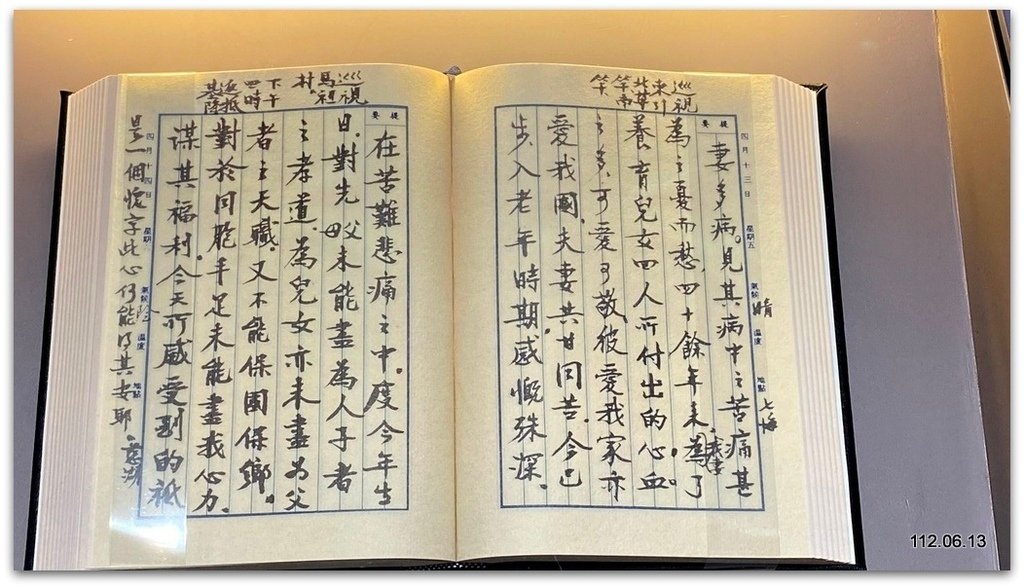 巡視
東引
共莒
竿南
竿
提要
四月十三日 星期五 氣候 晴 溫度 地點 七海
妻多病。見其病中之苦痛甚
為之憂而愁，四十餘年來。我妻為了
養育兒女四人所付出的心血
之多，可愛可敬彼愛我家亦
愛我國，夫妻共甘同苦。今已
步入老年時期，感慨殊深。
巡視
馬祖
村
下午
四時
返抵
基隆
提要
在苦難悲痛之中。度今年生
日，對先父母未能盡為人子者
之孝道，為兒女亦未盡為父
者之天職，又不能保國保鄉。
對於同胞手足未能盡我心力，
謀其福利。今天所感受到的祇
四月十四日 星期 氣候 溫度 地點 慈湖
是一個愧字此心何能得其安耶。
112.06.13